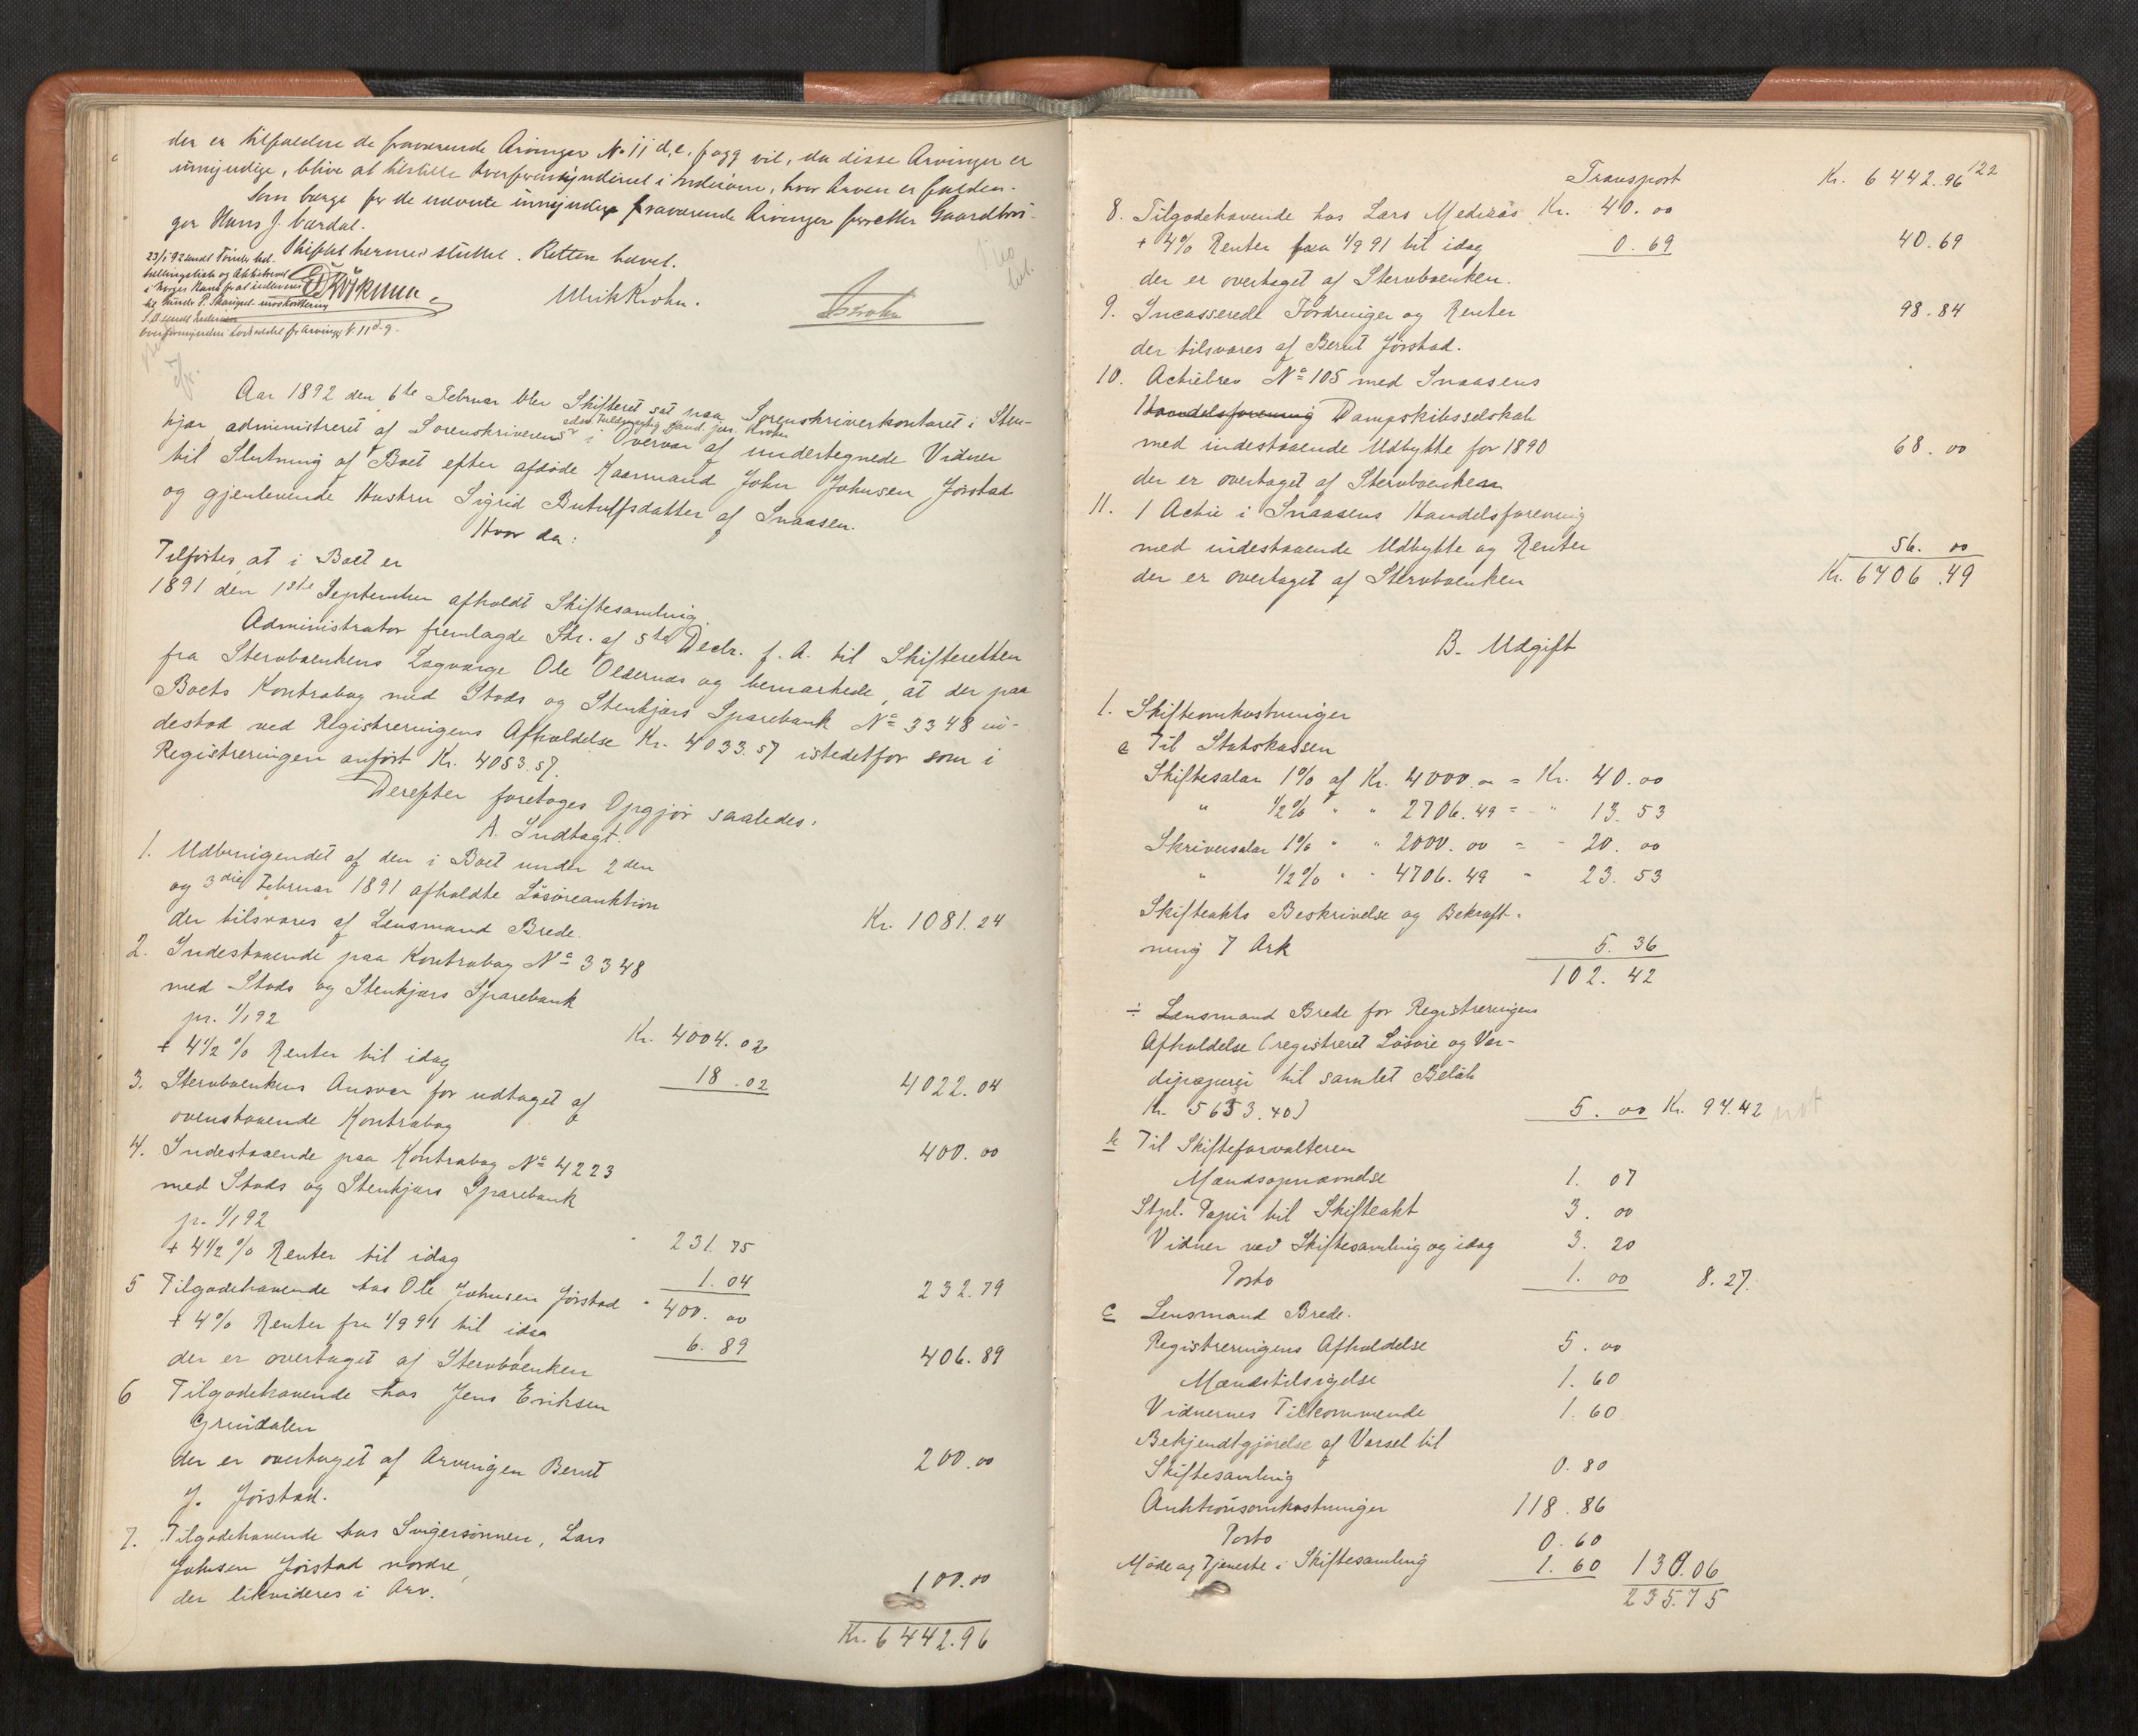 der er tilfaldere de fraværende Arvinger No 11 d, e, f og g vil, da disse Arvinger er
umyndige, blive at tilstille Overformynderiet i Inderøen, hvor Arven er falden.
Som værge for de nævnte umyndige fraværende Arvinger forretter Gaardbru-
ger Hans J. Værdal.
Skiftet hermed sluttet. Retten hævet.
23/1 92 sendt
Ulrik Krohn.
Krohn
Aar 1892 den 6te Februar blev Skifteret sat paa Sorenskriverkontoret i Sten-
kjær administreret af Sorenskriverens edsv. Fuldmægtig Cand. jur. Krohn i Overvær af undertegnede Vidner
til Slutning af Boet efter afdøde Kaarmand John Johnsen Jørstad
og gjenlevende Hustru Sigrid Bntulfsdatter af Snaasen.
Hvor da:
Tilførtes, at i Boet er
1891 den 1ste September afholdt Skiftesamling.
Administrator fremlagde Skr. af 5te Decbr. f. A. til Skifteretten
fra Stervboenkens Lagværge Ole Oldernæs og bemærkede, at der paa
Boets Kontrabog med Stods og Stenkjærs Sparebank No 3348 in-
destod ved Registreringens Afholdelse Kr. 4033.57 istedetfor som i
Registreringen anført Kr. 4053.57.
Derefter foretoges Opgjør saaledes:
A. Indtægt.
1. Udbringendet af den i Boet under 2den
og 3die Februar 1891 afholdte Løsøreauktion
der tilsvares af Lensmand Brede. Kr. 1081.24
2. Indestaaende paa Kontrabog No 3348
med Stods og Stenkjærs Sparebank
pr. 1/1 92 Kr. 4004.02
+ 4 1/2 % Renter til idag 18.02 4022.04
3. Stervboenkens Ansvar for udtaget af
ovenstaaende Kontrabog 400.00
4. Indestaaende paa Kontrabog No 4223
med Stods og Stenkjærs Sparebank
pr. 1/1 92 " 231.75
+ 4 1/2 % Renter til idag 1.04 232.79
5 Tilgodehavende hos Ole Johnsen Jørstad " 400.00
+ 4 % Renter fra 1/9 91 til idag 6.89 406.89
der er overtaget af Stervboenken
6 Tilgodehavende hos Jens Eriksen
Grøndalen
der er overtaget af Arvingen Bernt 200.00
J. Jørstad.
7. Tilgodehavende hos Svigersønnen, Lars
Johnsen Jørstad nordre,
der likvideres i Arv. 100.00
Kr. 6442.96
122
Transport Kr. 6442.96
8. Tilgodehavende hos Lars Mediaas Kr. 40.00
+ 4% Renter fra 1/9 91 til idag 0.69 40.69
der er overtaget af Stervboenken.
9. Incasserede Fordringer og Renter 98.84
der tilsvares af Bernt Jørstad.
10. Actiebrev No 105 med Snaasens
Handelsforening Dampskibsselskab
med indestaaende Udbytte for 1890 68.00
der er overtaget af Stervboenken
11. 1 Actie i Snaasens Handelsforening
med indestaaende Udbytte og Renter 56.00
der er overtaget af Stervboenken Kr. 6706.49
B. Udgift
1. Skifteomkostninger
a Til Statskassen
Skiftesalær 1% af Kr. 4000.00 = Kr. 40.00
" 1/2 % " " 2706.49 = " 13.53
Skriversalær 1% " " 2000.00 = " 20.00
" 1/2 % " " 4706.49 " 23.53
Skifteakts Beskrivelse og Bekræft-
ning 7 Ark 5.36
102.42
÷ Lensmand Brede for Registreringens
Afholdelse (registreret Løsøre og Vær-
dipapirer til samlet Beløb
Kr. 5653.40) 5.00 Kr. 97.42
b Til Skifteforvalteren
Mændsopnævnelse 1.07
Stpl. Papir til Skifteakt 3.00
Vidner ved Skiftesamling og idag 3.20
Porto 1.00 8.27.
c Lensmand Brede.
Registreringens Afholdelse 5.00
Mændstilsigelse 1.60
Vidnernes Tilkommende 1.60
Bekjendtgjørelse af Varsel til
Skiftesamling 0.80
Auktionsomkostninger 118.86
Porto 0.60
Møde og Tjeneste i Skiftesamling 1.60 130.06
235.75